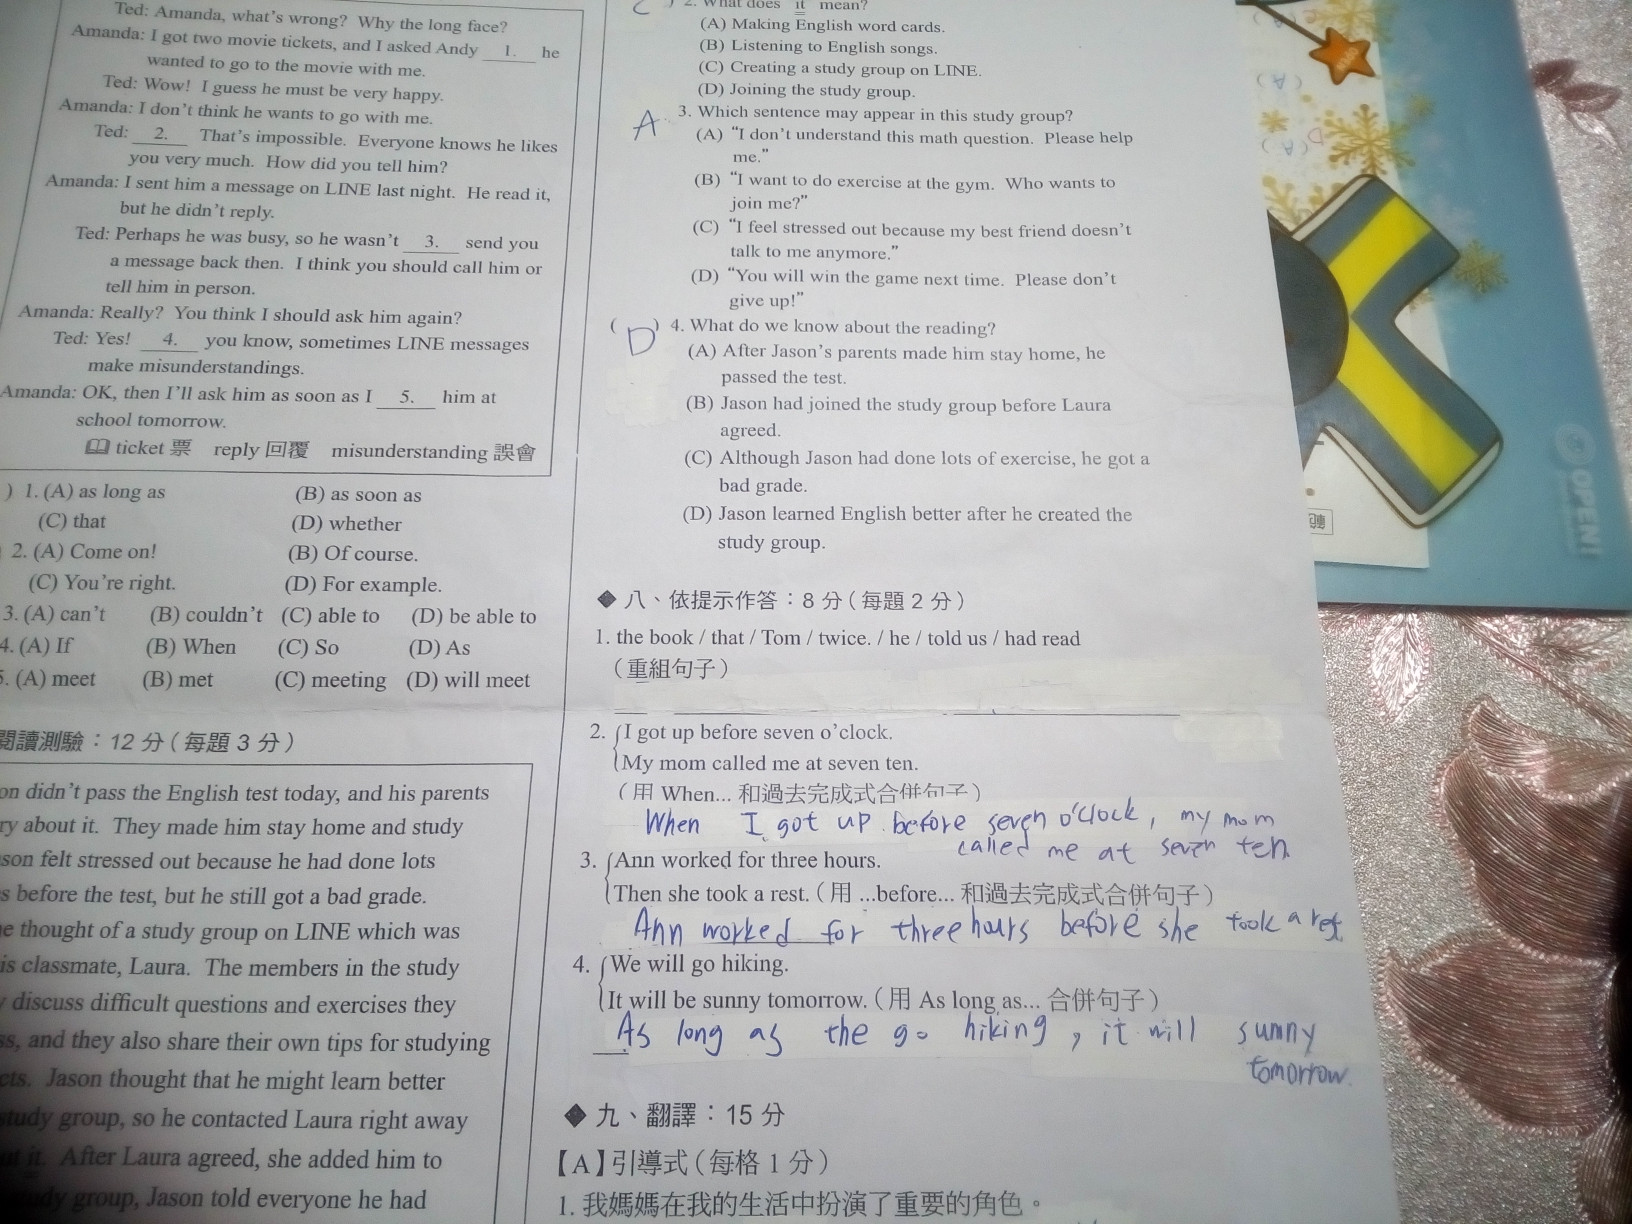 Ted: Amanda, what's wrong? Why the long face?
Amanda: I got two movie tickets, and I asked Andy 1. he
wanted to go to the movie with me.
Ted: Wow! I guess he must be very happy.
Amanda: I don't think he wants to go with me.
Ted: 2. That's impossible. Everyone knows he likes
you very much. How did you tell him?
Amanda: I sent him a message on LINE last night. He read it,
but he didn't reply.
Ted: Perhaps he was busy, so he wasn't 3. send you
a message back then. I think you should call him or
tell him in person.
Amanda: Really? You think I should ask him again?
Ted: Yes! 4. you know, sometimes LINE messages
make misunderstandings.
Amanda: OK, then I'll ask him as soon as I 5. him at
school tomorrow.
ticket 票 reply 回覆 misunderstanding 誤會
) 1. (A) as long as (B) as soon as
(C) that (D) whether
2. (A) Come on! (B) Of course.
(C) You're right. (D) For example.
3. (A) can't (B) couldn't (C) able to (D) be able to
4. (A) If (B) When (C) So (D) As
5. (A) meet (B) met (C) meeting (D) will meet
閱讀測驗：12 分（每題 3 分）
on didn't pass the English test today, and his parents
ry about it. They made him stay home and study
son felt stressed out because he had done lots
s before the test, but he still got a bad grade.
e thought of a study group on LINE which was
is classmate, Laura. The members in the study
discuss difficult questions and exercises they
ss, and they also share their own tips for studying
cts. Jason thought that he might learn better
study group, so he contacted Laura right away
ut it. After Laura agreed, she added him to
udy group, Jason told everyone he had
C ) 2. What does it mean?
(A) Making English word cards.
(B) Listening to English songs.
(C) Creating a study group on LINE.
(D) Joining the study group.
A 3. Which sentence may appear in this study group?
(A) “I don't understand this math question. Please help
me.”
(B) “I want to do exercise at the gym. Who wants to
join me?”
(C) “I feel stressed out because my best friend doesn't
talk to me anymore.”
(D) “You will win the game next time. Please don't
give up!”
( D ) 4. What do we know about the reading?
(A) After Jason's parents made him stay home, he
passed the test.
(B) Jason had joined the study group before Laura
agreed.
(C) Although Jason had done lots of exercise, he got a
bad grade.
(D) Jason learned English better after he created the
study group.
◆ 八、依提示作答：8 分（每題 2 分）
1. the book / that / Tom / twice. / he / told us / had read
（重組句子）
2. I got up before seven o'clock.
My mom called me at seven ten.
（用 When... 和過去完成式合併句子）
When I got up before seven o'clock, my mom
called me at seven ten.
3. Ann worked for three hours.
Then she took a rest.（用 ...before... 和過去完成式合併句子）
Ann worked for three hours before she took a rest.
4. We will go hiking.
It will be sunny tomorrow.（用 As long as... 合併句子）
As long as the go hiking, it will sunny
tomorrow.
◆ 九、翻譯：15 分
【A】引導式（每格 1 分）
1. 我媽媽在我的生活中扮演了重要的角色。
OPEN!